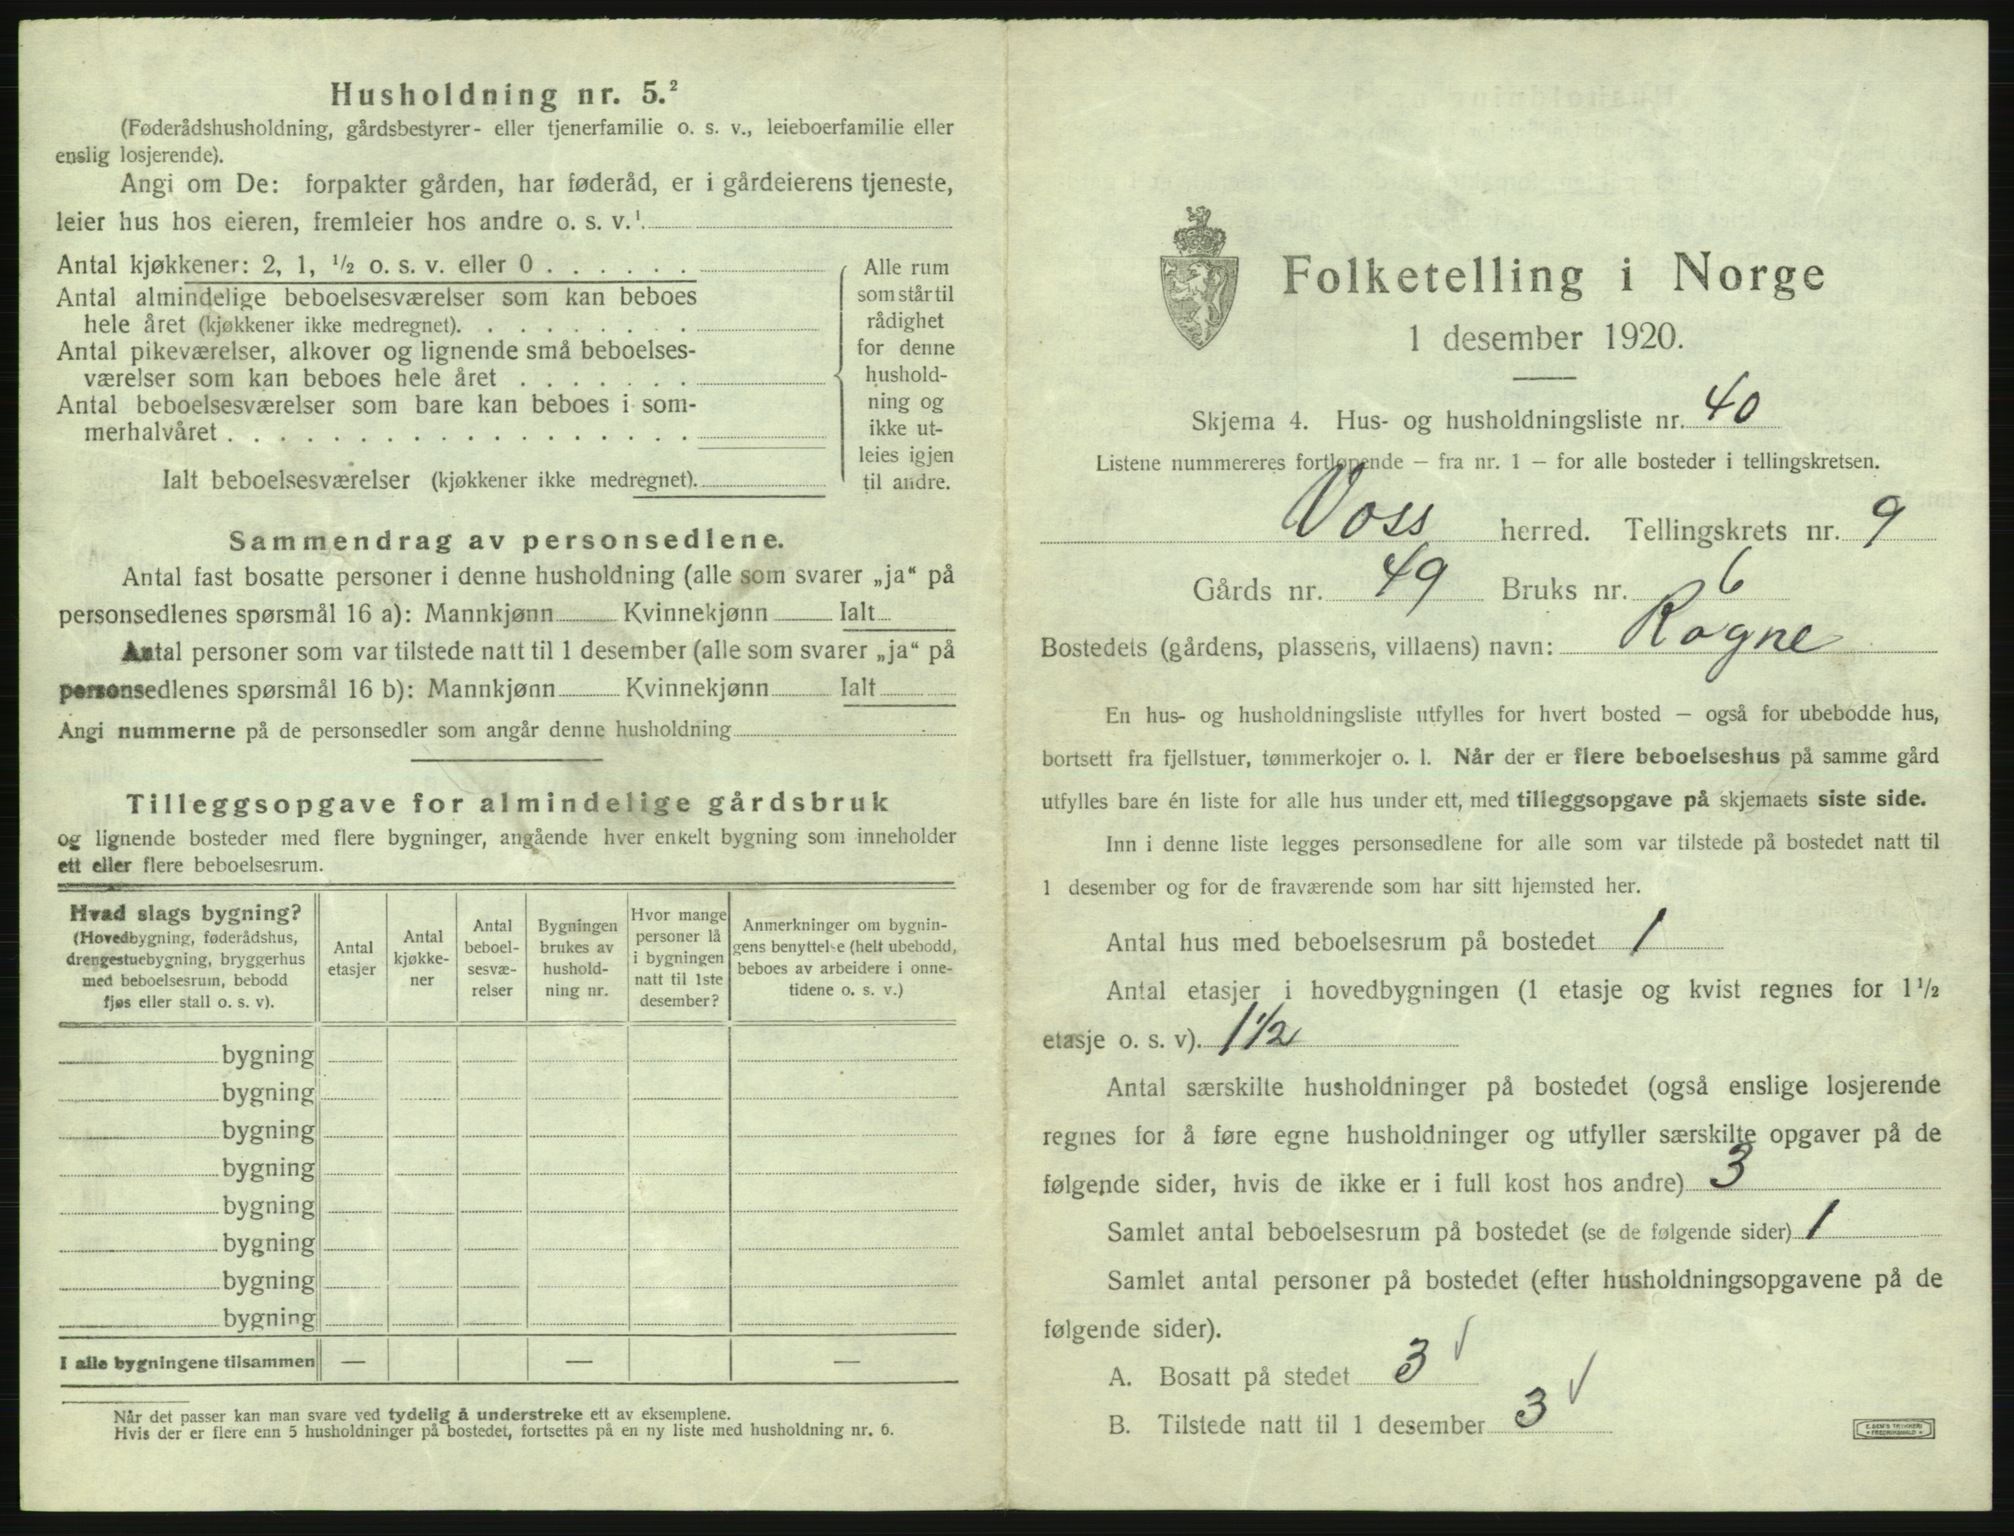 Husholdning nr. 5.²
(Føderådshusholdning, gårdsbestyrer- eller tjenerfamilie o. s. v., leieboerfamilie eller
enslig losjerende).
Angi om De: forpakter gården, har føderåd, er i gårdeierens tjeneste,
leier hus hos eieren, fremleier hos andre o. s. v.¹
Antal kjøkkener: 2, 1, ½ o. s. v. eller 0 . . . . . .
Antal almindelige beboelsesværelser som kan beboes
hele året (kjøkkener ikke medregnet). . . . . . . . .
Antal pikeværelser, alkover og lignende små beboelses-
værelser som kan beboes hele året . . . . . . .
Antal beboelsesværelser som bare kan beboes i som-
merhalvåret . . . . . . . . . . . . . . . . . .
Ialt beboelsesværelser (kjøkkener ikke medregnet).
Alle rum
som står til
rådighet
for denne
hushold-
ning og
ikke ut-
leies igjen
til andre.
Sammendrag av personsedlene.
Antal fast bosatte personer i denne husholdning (alle som svarer „ja“ på
personsedlenes spørsmål 16 a): Mannkjønn Kvinnekjønn Ialt
Antal personer som var tilstede natt til 1 desember (alle som svarer „ja“ på
personsedlenes spørsmål 16 b): Mannkjønn Kvinnekjønn Ialt
Angi nummerne på de personsedler som angår denne husholdning
Tilleggsopgave for almindelige gårdsbruk
og lignende bosteder med flere bygninger, angående hver enkelt bygning som inneholder
ett eller flere beboelsesrum.
Hvad slags bygning?
(Hovedbygning, føderådshus,
drengestuebygning, bryggerhus
med beboelsesrum, bebodd
fjøs eller stall o. s. v).
Antal
etasjer
Antal
kjøkke-
ner
Antal
beboel-
sesvæ-
relser
Bygningen
brukes av
hushold-
ning nr.
Hvor mange
personer lå
i bygningen
natt til 1ste
desember?
Anmerkninger om bygnin-
gens benyttelse (helt ubebodd,
beboes av arbeidere i onne-
tidene o. s. v.)
bygning
bygning
bygning
bygning
bygning
bygning
bygning
bygning
I alle bygningene tilsammen — — —
Når det passer kan man svare ved tydelig å understreke ett av eksemplene.
Hvis der er flere enn 5 husholdninger på bostedet, fortsettes på en ny liste med husholdning nr. 6.
Folketelling i Norge
1 desember 1920.
Skjema 4. Hus- og husholdningsliste nr. 40
Listene nummereres fortløpende – fra nr. 1 – for alle bosteder i tellingskretsen.
Voss herred. Tellingskrets nr. 9
Gårds nr. 49 Bruks nr. 6
Bostedets (gårdens, plassens, villaens) navn: Rogne
En hus- og husholdningsliste utfylles for hvert bosted – også for ubebodde hus,
bortsett fra fjellstuer, tømmerkojer o. l. Når der er flere beboelseshus på samme gård
utfylles bare én liste for alle hus under ett, med tilleggsopgave på skjemaets siste side.
Inn i denne liste legges personsedlene for alle som var tilstede på bostedet natt til
1 desember og for de fraværende som har sitt hjemsted her.
Antal hus med beboelsesrum på bostedet 1
Antal etasjer i hovedbygningen (1 etasje og kvist regnes for 1½
etasje o. s. v). 1½
Antal særskilte husholdninger på bostedet (også enslige losjerende
regnes for å føre egne husholdninger og utfyller særskilte opgaver på de
følgende sider, hvis de ikke er i full kost hos andre) 3
Samlet antal beboelsesrum på bostedet (se de følgende sider) 1
Samlet antal personer på bostedet (efter husholdningsopgavene på de
følgende sider).
A. Bosatt på stedet 3 √
B. Tilstede natt til 1 desember 3 √